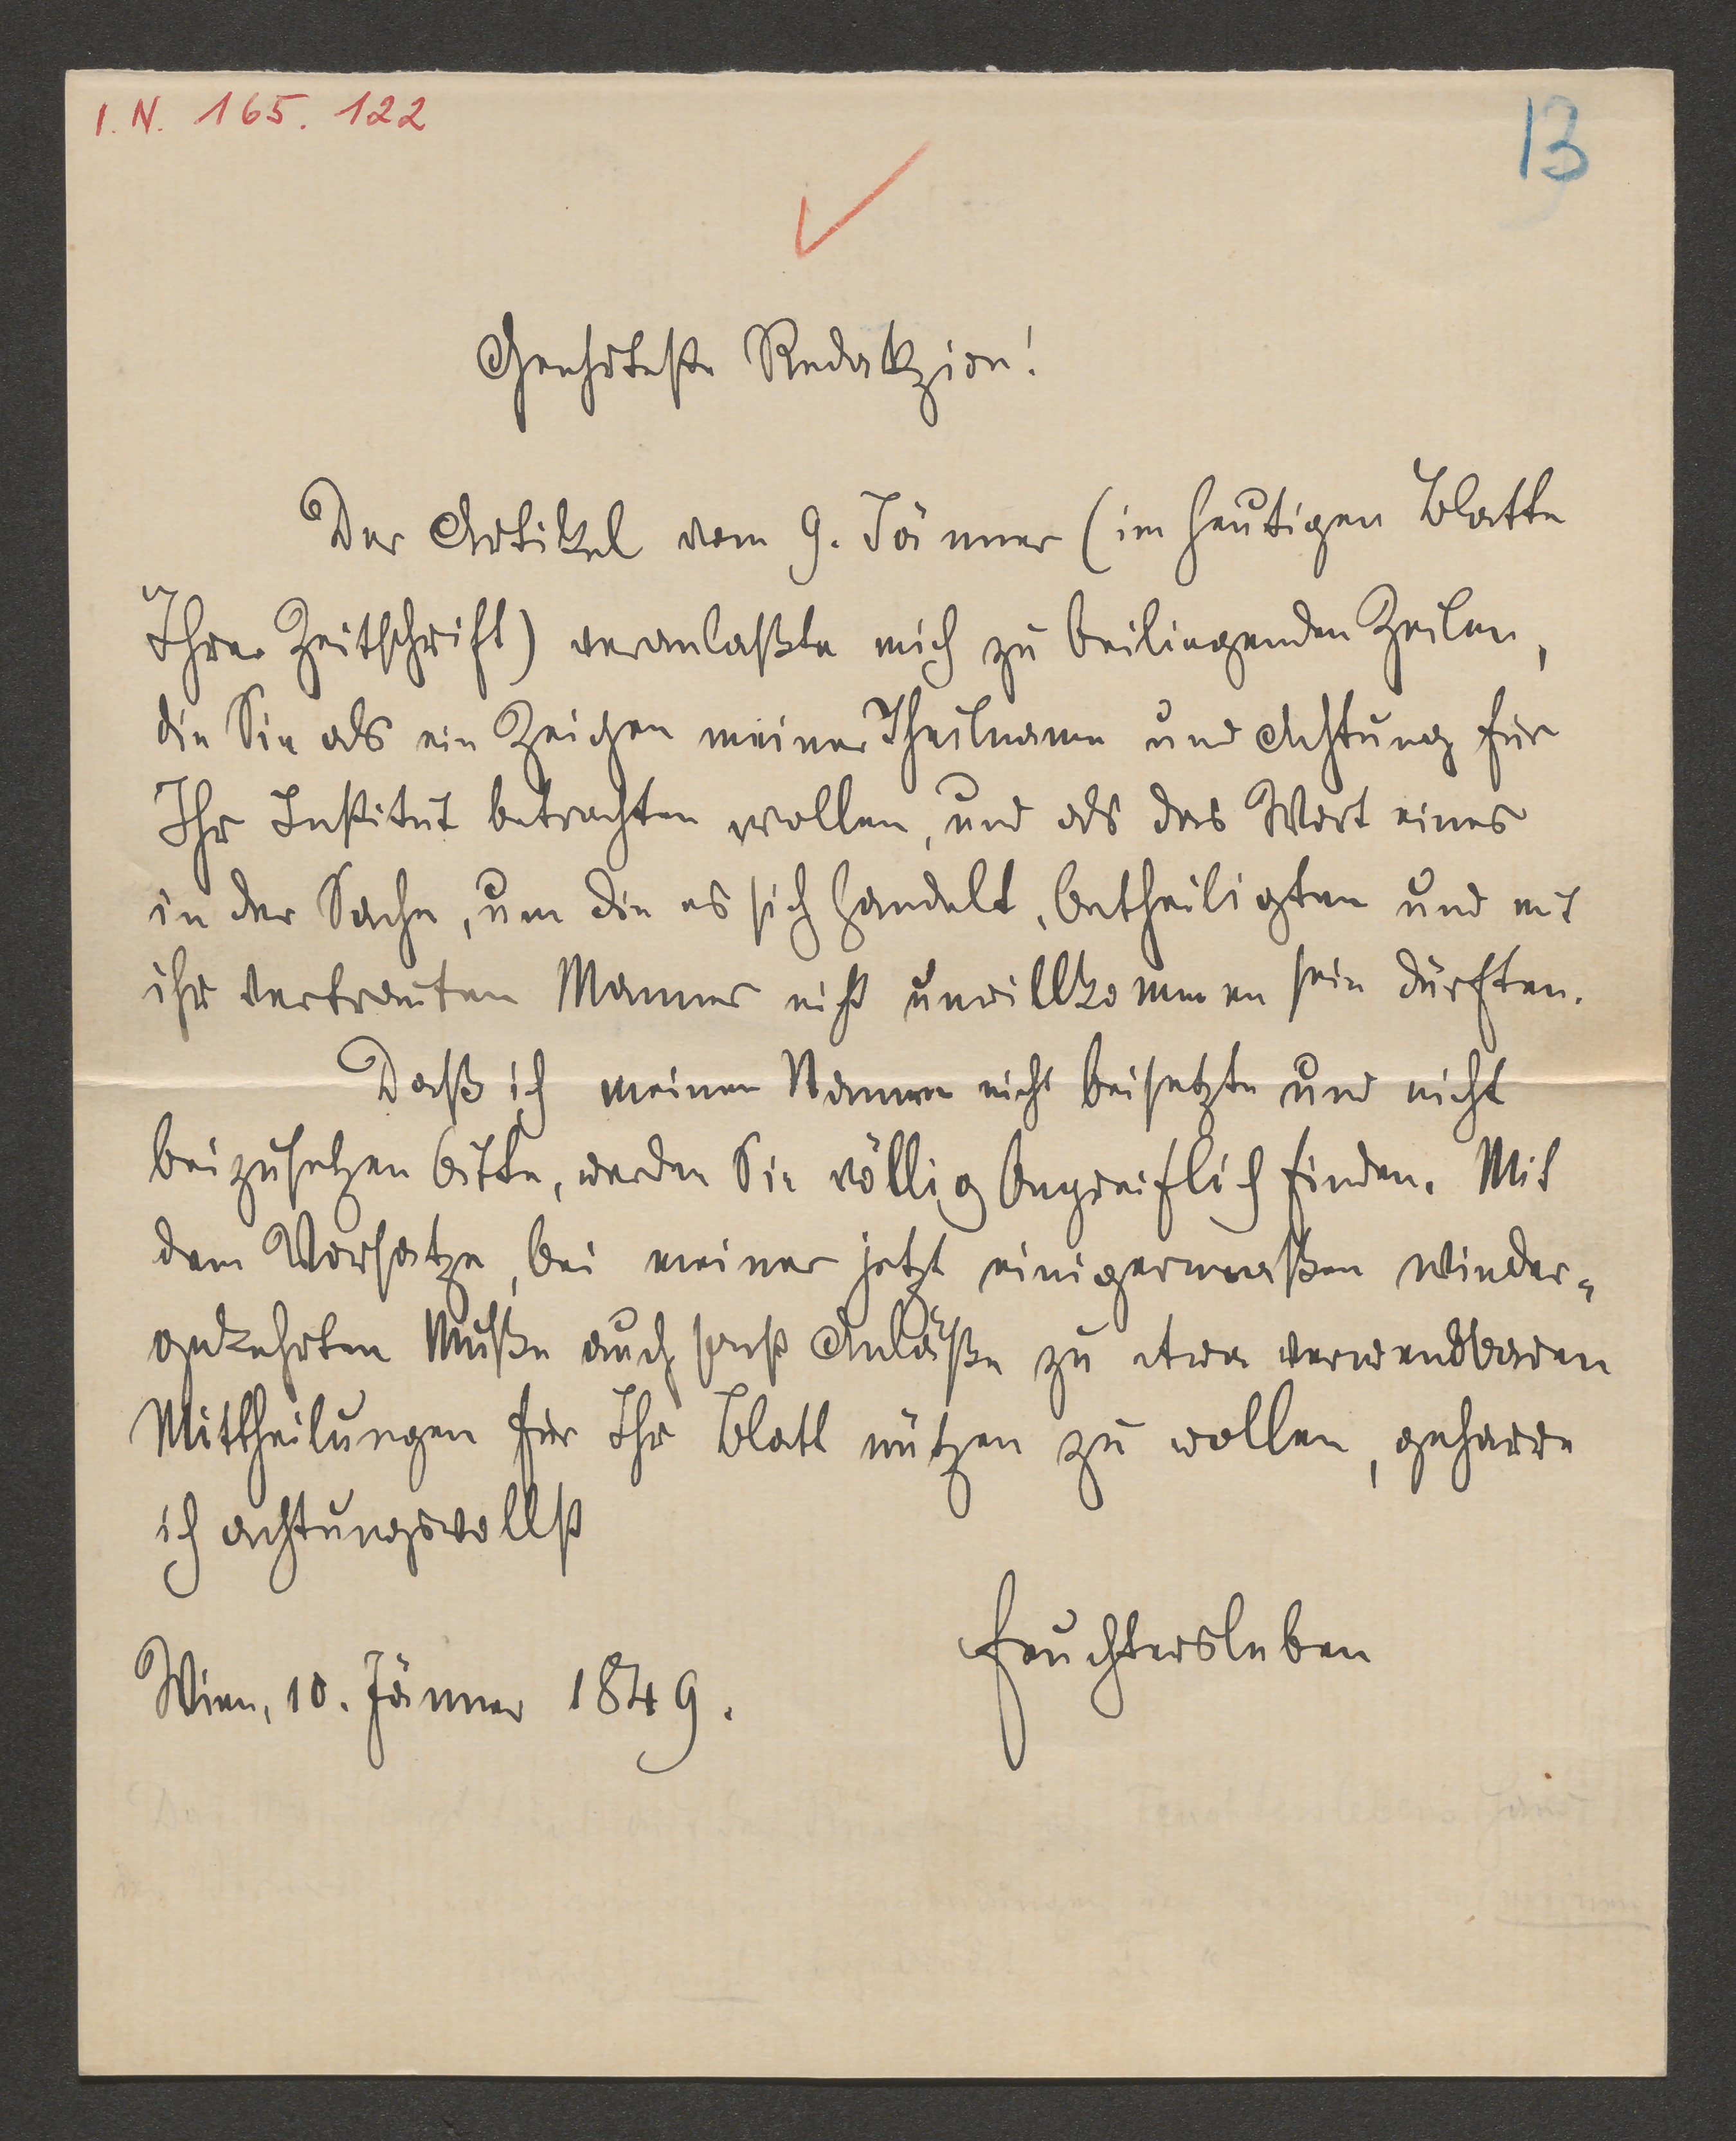 I. N. 165. 122
13
Geehrteste Redakzion!
Der Artikel vom 9. Jänner (im heutigen Blatte
Ihrer Zeitschrift) veranlaßte mich zu beiliegenden Zeilen,
die Sie als ein Zeichen meiner Theilname und Achtung für
Ihr Institut betrachten wollen, und als das Wort eines
in der Sache, um die es sich handelt, betheiligten und mit
ihr vertrauten Mannes nicht unwillkommen sein dürften.
Daß ich meinen Namen nicht beisetzte und nicht
beizusetzen bitte, werden Sie völlig begreiflich finden. Mit
dem Vorsatze, bei meiner jetzt einigermaßen wieder-
gekehrten Muße auch sonst Anläße zu etwa verwendbaren
Mittheilungen für Ihr Blatt nützen zu wollen, geharre
ich achtungsvollst
Feuchtersleben
Wien, 10. Jänner 1849.